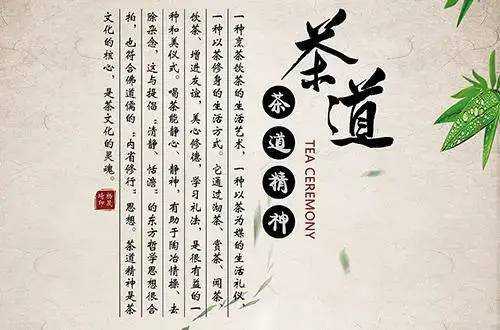 茶道
TEA CEREMONY
茶道精神
一种烹茶饮茶的生活艺术，一种以茶为媒的生活礼仪，
一种以茶修身的生活方式。它通过沏茶、赏茶、闻茶、
饮茶、增进友谊，美心修德，学习礼法，是很有益的一
种和美仪式。喝茶能静心、静神，有助于陶冶情操、去
除杂念，这与提倡“清静、恬澹”的东方哲学思想很合
拍，也符合佛道儒的“内省修行”思想。茶道精神是茶
文化的核心，是茶文化的灵魂。